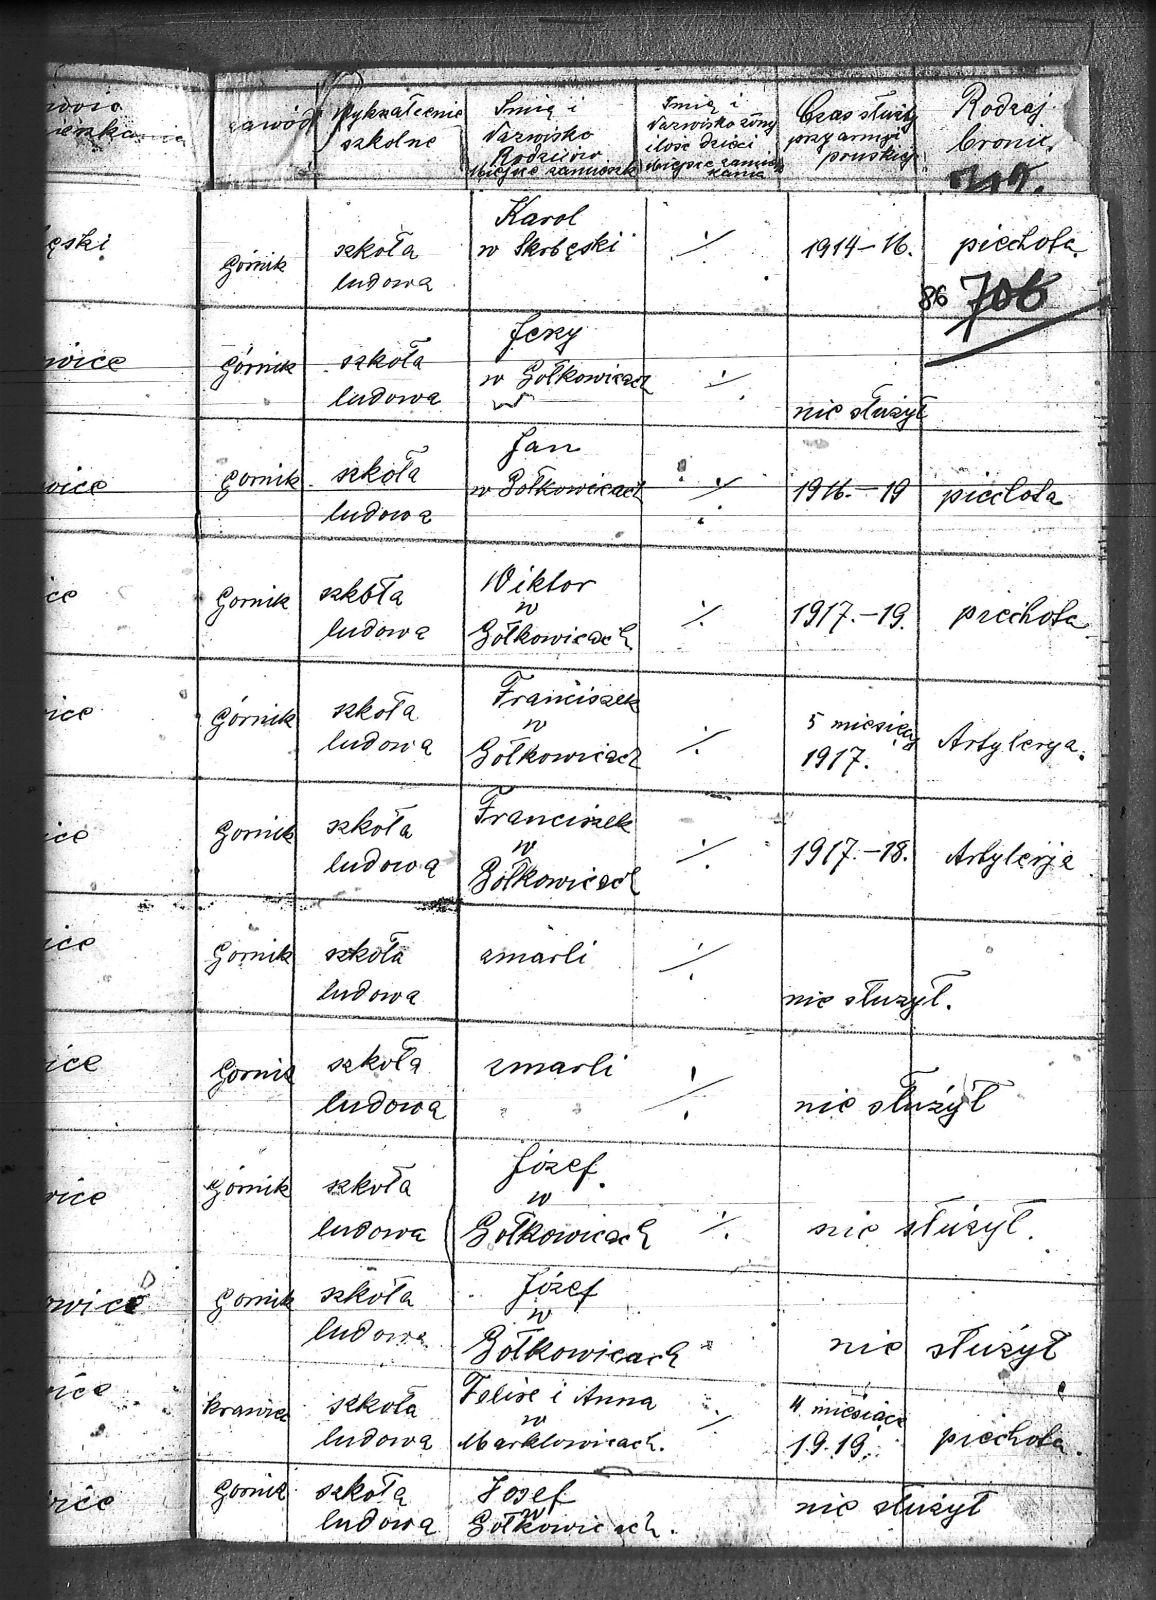 zawód
Wykształcenie
szkolne
Imię i
Nazwisko
Rodziców
Miejsce zamieszk
Imię i
Nazwisko żony
ilość dzieci
Miejsce zamiesz
kania
Czas służby
przy armji
pruskiej
Rodzaj
broni.
ęski
Górnik
szkoła
ludowa
Karol
w Skrbęski
1914-16.
piechota.
86 706
wice
Górnik
szkoła
ludowa
Jerzy
w Gołkowicach
nie służył
wice
Gornik
szkoła
ludowa
Jan
w Gołkowicach
1916.-19
piechota
ice
Gornik
szkoła
ludowa
Wiktor
w
Gołkowicach
1917.-19.
piechota
wice
Górnik
szkoła
ludowa
Franciszek
w
Gołkowicach
5 miesięcy
1917.
Artylerya.
ice
Gornik
szkoła
ludowa
Franciszek
w
Gołkowicach
1917.-18.
Artylerja
ice
Gornik
szkoła
ludowa
zmarli
nie służył.
ice
Gornik
szkoła
ludowa
zmarli
nie służył
wice
Górnik
szkoła
ludowa
Józef
w
Gołkowicach
nie służył.
owice
Gornik
szkoła
ludowa
Józef
w
Gołkowicach
nie służył
wice
Krawiec
szkoła
ludowa
Felixe i Anna
w
Marklowicach.
4 miesiące
1919.
piechota.
wice
Gornik
szkoła
ludowa
Josef
w
Gołkowicach.
nie służył